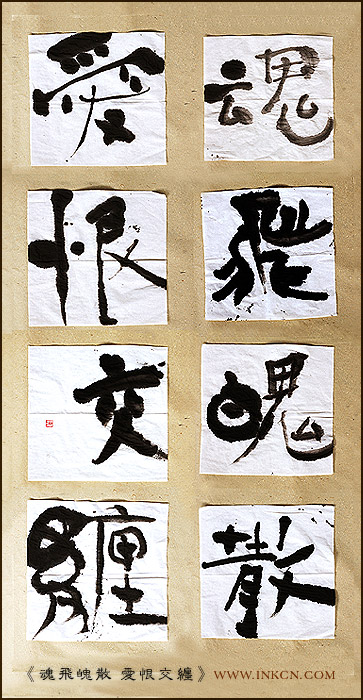 魂
飛
魄
散
愛
恨
交
纏
《魂飛魄散 愛恨交纏》WWW.INKCN.COM